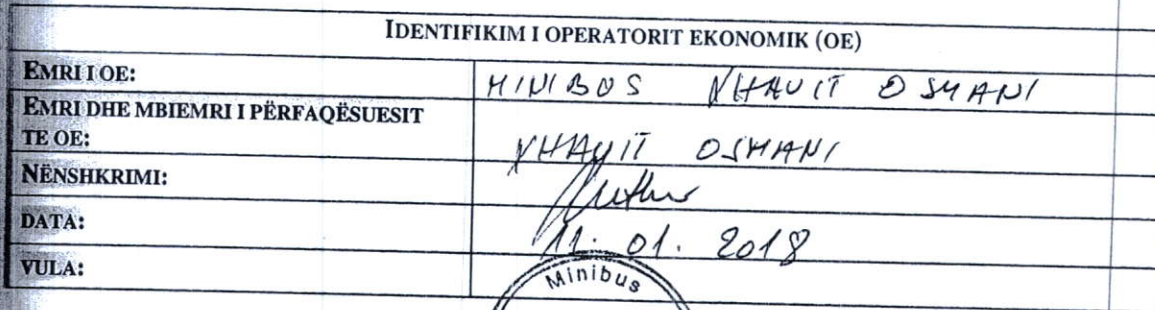 IDENTIFIKIM I OPERATORIT EKONOMIK (OE)
EMRI I OE: MINIBUS XHAVIT OSMANI
EMRI DHE MBIEMRI I PËRFAQËSUESIT
TE OE: XHAVIT OSMANI
NËNSHKRIMI:
DATA: 11. 01. 2018
VULA:
Minibus